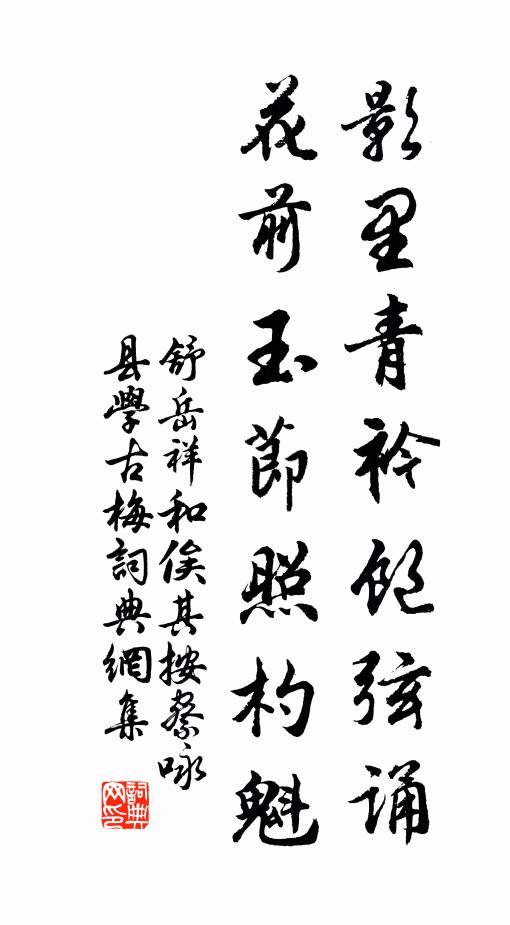 影里青衿饱弦诵
花前玉節照杓魁
舒岳祥和侯其按察咏
县學古梅詞典網集
詞典网印